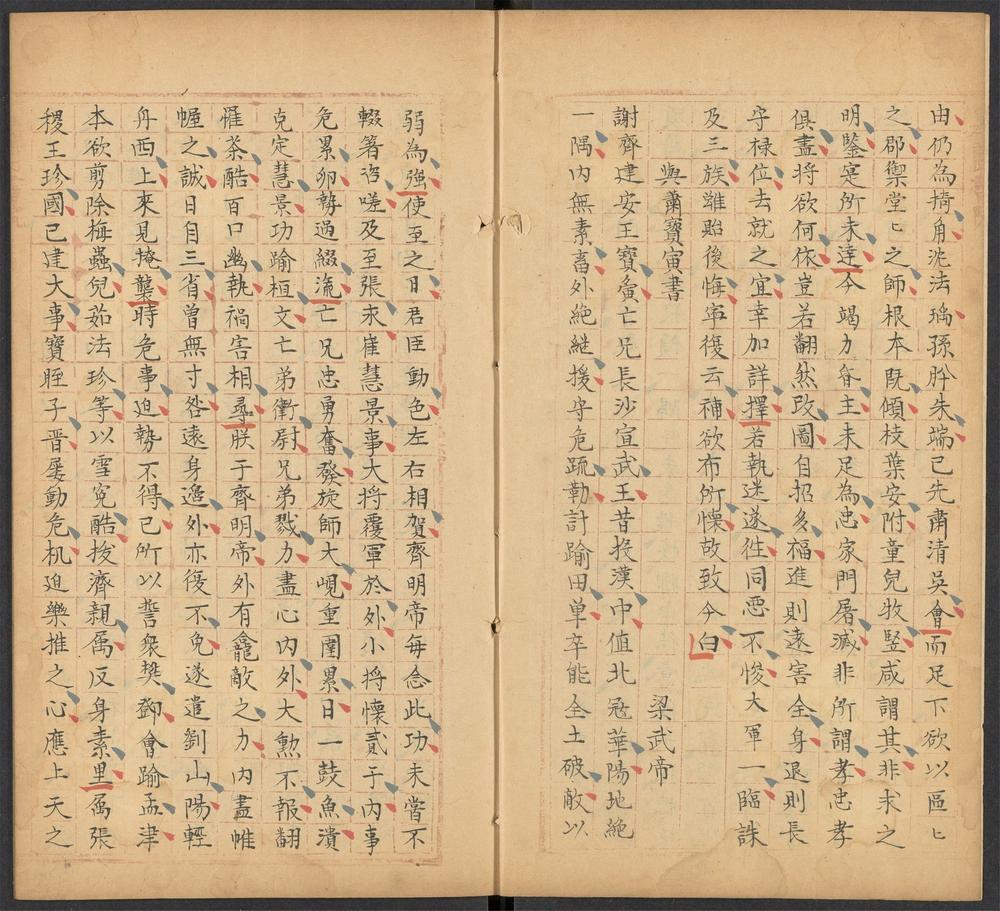 由仍為掎角沈法瑀孫肸朱端已先肅清吳會而足下欲以區〻
之郡禦堂〻之師根本既傾枝葉安附童兒牧豎咸謂其非求之
明鑒寔所未達今竭力昏主未足為忠家門屠滅非所謂孝忠孝
俱盡將欲何依豈若翻然改圖自招多福進則遠害全身退則長
守祿位去就之宜幸加詳擇若執迷遂往同惡不悛大軍一臨誅
及三族雖貽後悔寧復云補欲布所懷故致今白
與蕭寶寅書 梁武帝
謝齊建安王寶寅亡兄長沙宣武王昔投漢中值北冦華陽地絶
一隅内無素畜外絶継援守危疏勒計踰田单卒能全土破敵以
弱為強使至之日君臣動色左右相賀齊明帝每念此功未嘗不
輟箸咨嗟及至張永崔慧景事大將覆軍於外小將懷貳于内事
危累卵勢過綴流亡兄忠勇奮發旋師大峴重圍累日一鼓魚潰
克定慧景功踰桓文亡弟衛尉兄弟戮力盡心内外大勲不報翻
罹荼酷百口幽執禍害相尋朕于齊明帝外有龕敵之力内盡帷
幄之誠日自三省曾無寸咎遠身邊外亦復不免遂遣劉山陽輕
舟西上來見掩襲時危事迫勢不得已所以誓衆樊鄧會踰孟津
本欲剪除梅蟲兒茹法珍等以雪寃酷拔濟親属反身素里属張
稷王珍國已建大事寶晊子晋屡動危机迫樂推之心應上天之